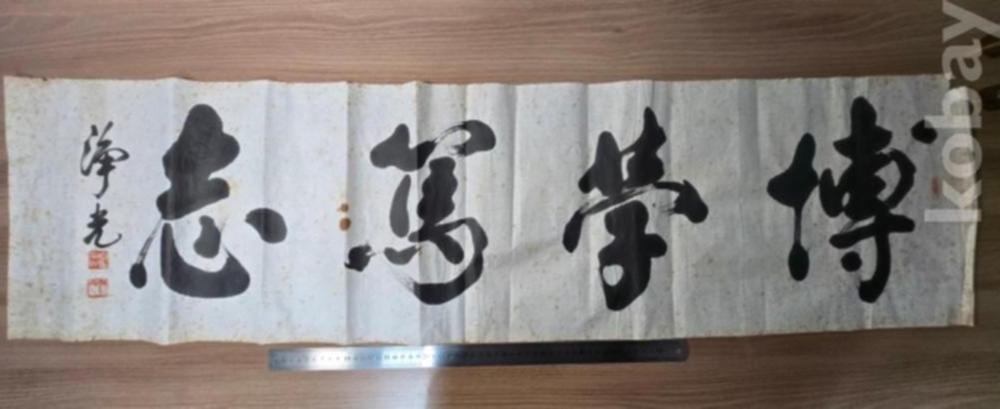 博學篤志
淨光
kobay